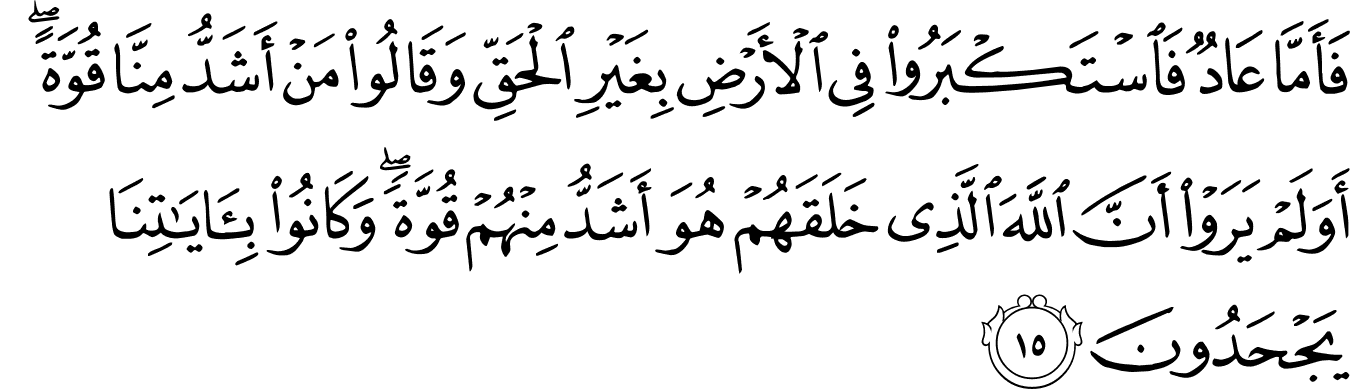 فَأَمَّا عَادٌ فَٱسْتَكْبَرُوا۟ فِى ٱلْأَرْضِ بِغَيْرِ ٱلْحَقِّ وَقَالُوا۟ مَنْ أَشَدُّ مِنَّا قُوَّةً ۖ
أَوَلَمْ يَرَوْا۟ أَنَّ ٱللَّهَ ٱلَّذِى خَلَقَهُمْ هُوَ أَشَدُّ مِنْهُمْ قُوَّةً ۖ وَكَانُوا۟ بِـَٔايَـٰتِنَا
يَجْحَدُونَ ١٥